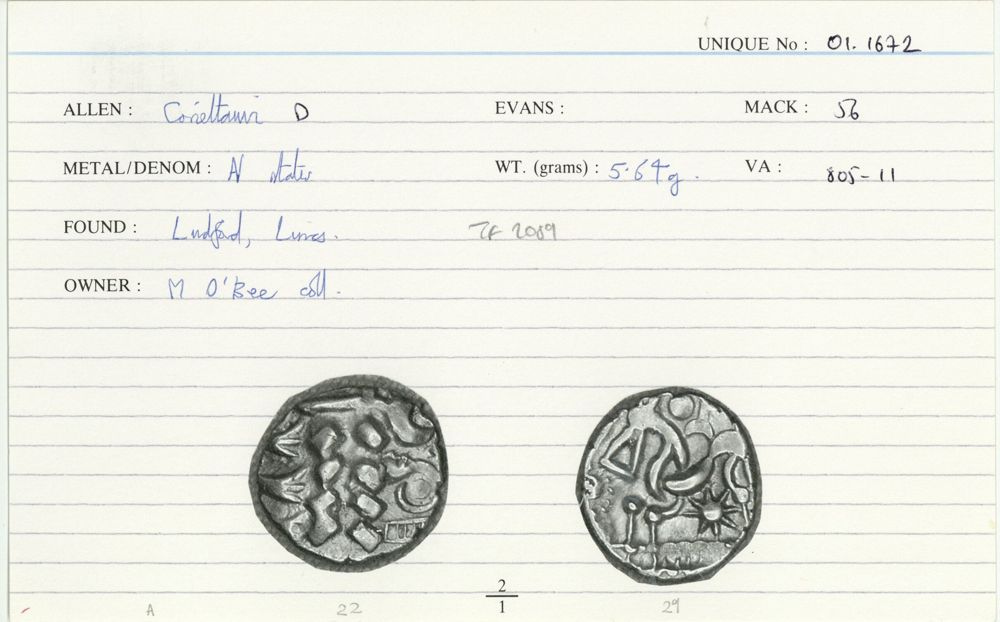 UNIQUE No : 01.1672
ALLEN : Corieltauvi D EVANS : MACK : 56
METAL/DENOM : AV stater WT. (grams) : 5.64g. VA : 805-11
FOUND : Ludford, Lincs. TF 2089
OWNER : M O'Bee coll.
2
1
A 22 29